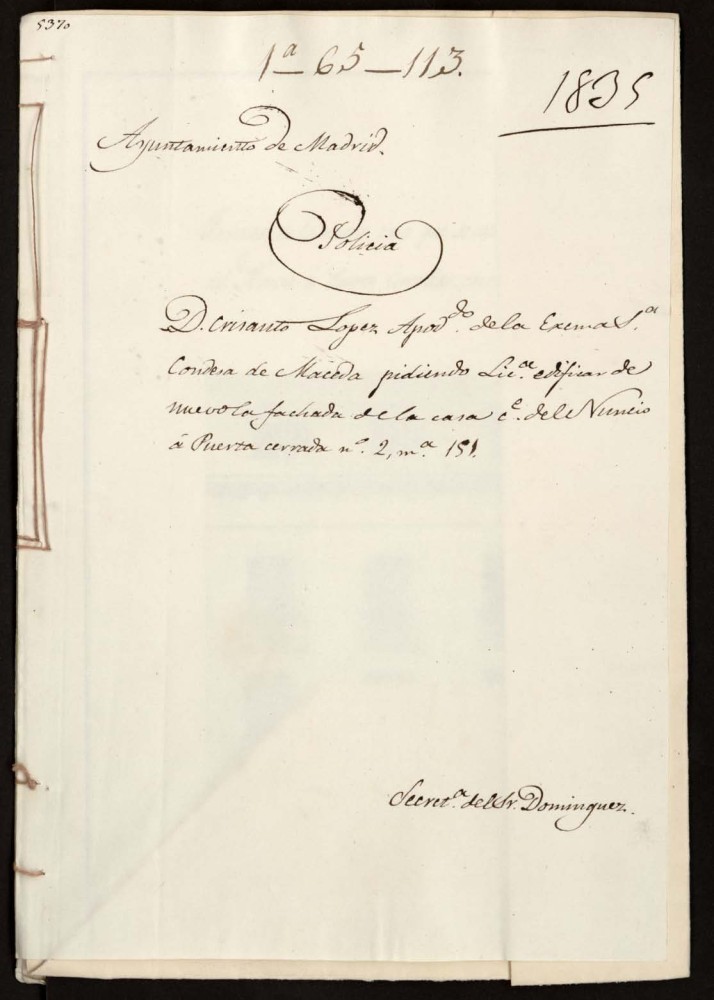 5370
1ª–65–113.
1835
Ayuntamiento de Madrid.
Policia
D. Crisanto Lopez Apodᵈᵒ. de la Exma Sª
Condesa de Maceda pidiendo Licª. edificar de
nuevo la fachada de la casa cᵉ. del Nuncio
á Puerta cerrada nº. 2, mª. 151.
Secretª. del Sr. Dominguez.